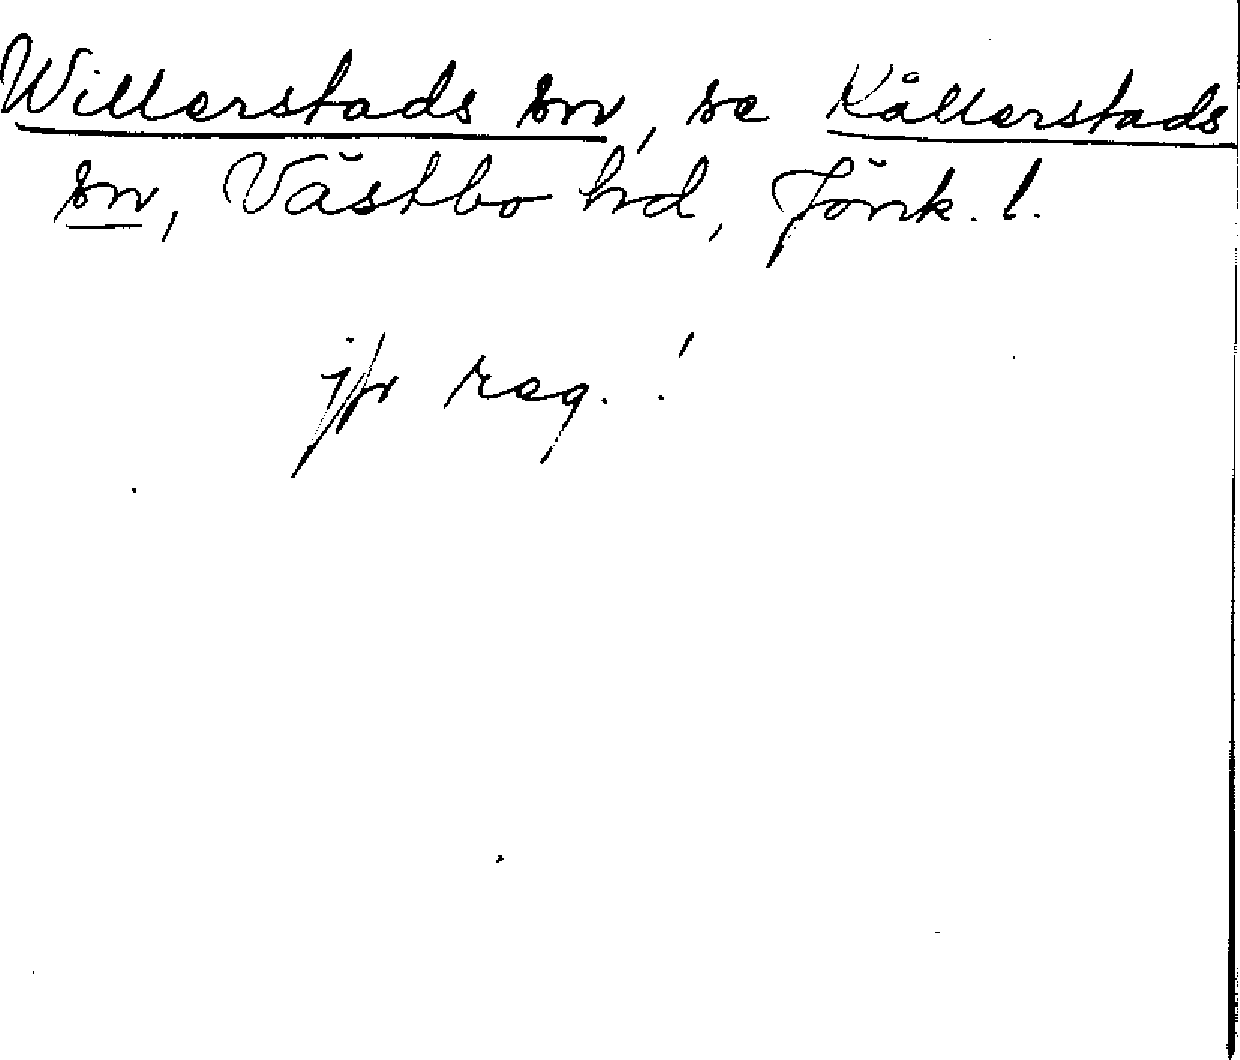 Willerstads sn, se Kållerstads
sn, Västbo hd, Jönk. l.
jfr reg. !